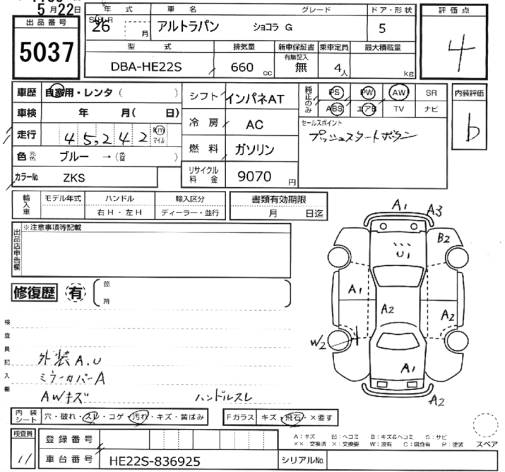 5月22日
出品番号
5037
26 年 式 月
車 名
アルトラパン
グレード
ショコラ G
ドア・形状
5
評価点
4
型 式
DBA-HE22S
排気量
660 cc
新車保証書
有無記入
無
乗車定員
4人
最大積載量
kg
車歴 自家用・レンタ( )
車検 年 月( 日)
走行 45,242 km マイル
色 ブルー →( )
カラーNo ZKS
シフト インパネAT
冷房 AC
燃料 ガソリン
リサイクル料金 9070 円
純正のみ
PS PW AW SR
ABS エアB TV ナビ
セールスポイント
プッシュスタートボタン
内装評価
b
輸入車
モデル年式 ハンドル 輸入区分
右H・左H ディーラー・並行
書類有効期限
月 日迄
出品店申告欄
※注意事項等記載
修復歴 有
箇所
検査員記入欄
外装A.U
ミラーカバーA
AWキズ
ハンドルスレ
A1 A3
B2
U1
A1
A2
A1
W2
A2
A2
内装シート 穴・破れ・スレ・コゲ・汚れ・キズ・黄ばみ
Fガラス キズ・飛石・×要す
検査員
11
登録番号
車台番号 HE22S-836925
シリアルNo
A:キズ U:ヘコミ B:キズ&ヘコミ S:サビ
××:交換済 ×:交換要 W:波有 C:腐食有 P:塗装
スペア